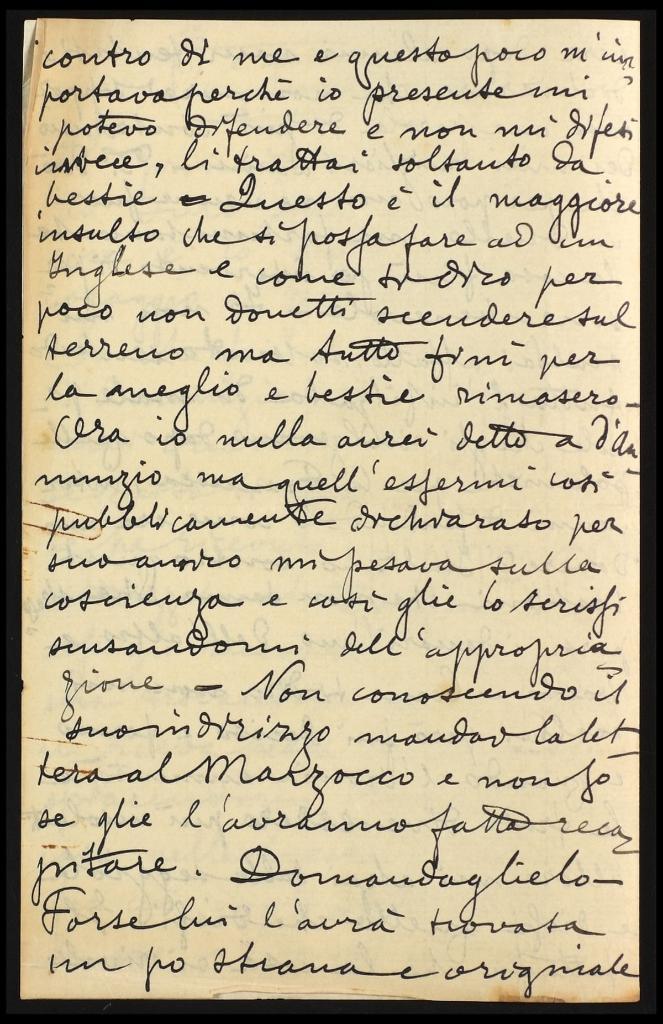 contro di me e questo poco m'im=
portava perchè io presente mi
potevo difendere e non mi difesi
invece, li trattai soltanto da
bestie = Questo è il maggiore
insulto che si possa fare ad un
Inglese e come ti dico per
poco non dovetti scendere sul
terreno ma tutto finì per
la meglio e bestie rimasero –
Ora io nulla avrei detto a D'An=
nunzio ma quell'essermi così
pubblicamente dichiarato per
suo amico mi pesava sulla
coscienza e così glie lo scrissi
scusandomi dell'appropria=
zione – Non conoscendo il
suo indirizzo mandavo la let
tera al Marzocco e non so
se glie l'avranno fatta reca=
pitare. Domandaglielo –
Forse lui l'avrà trovata
un po strana e originale